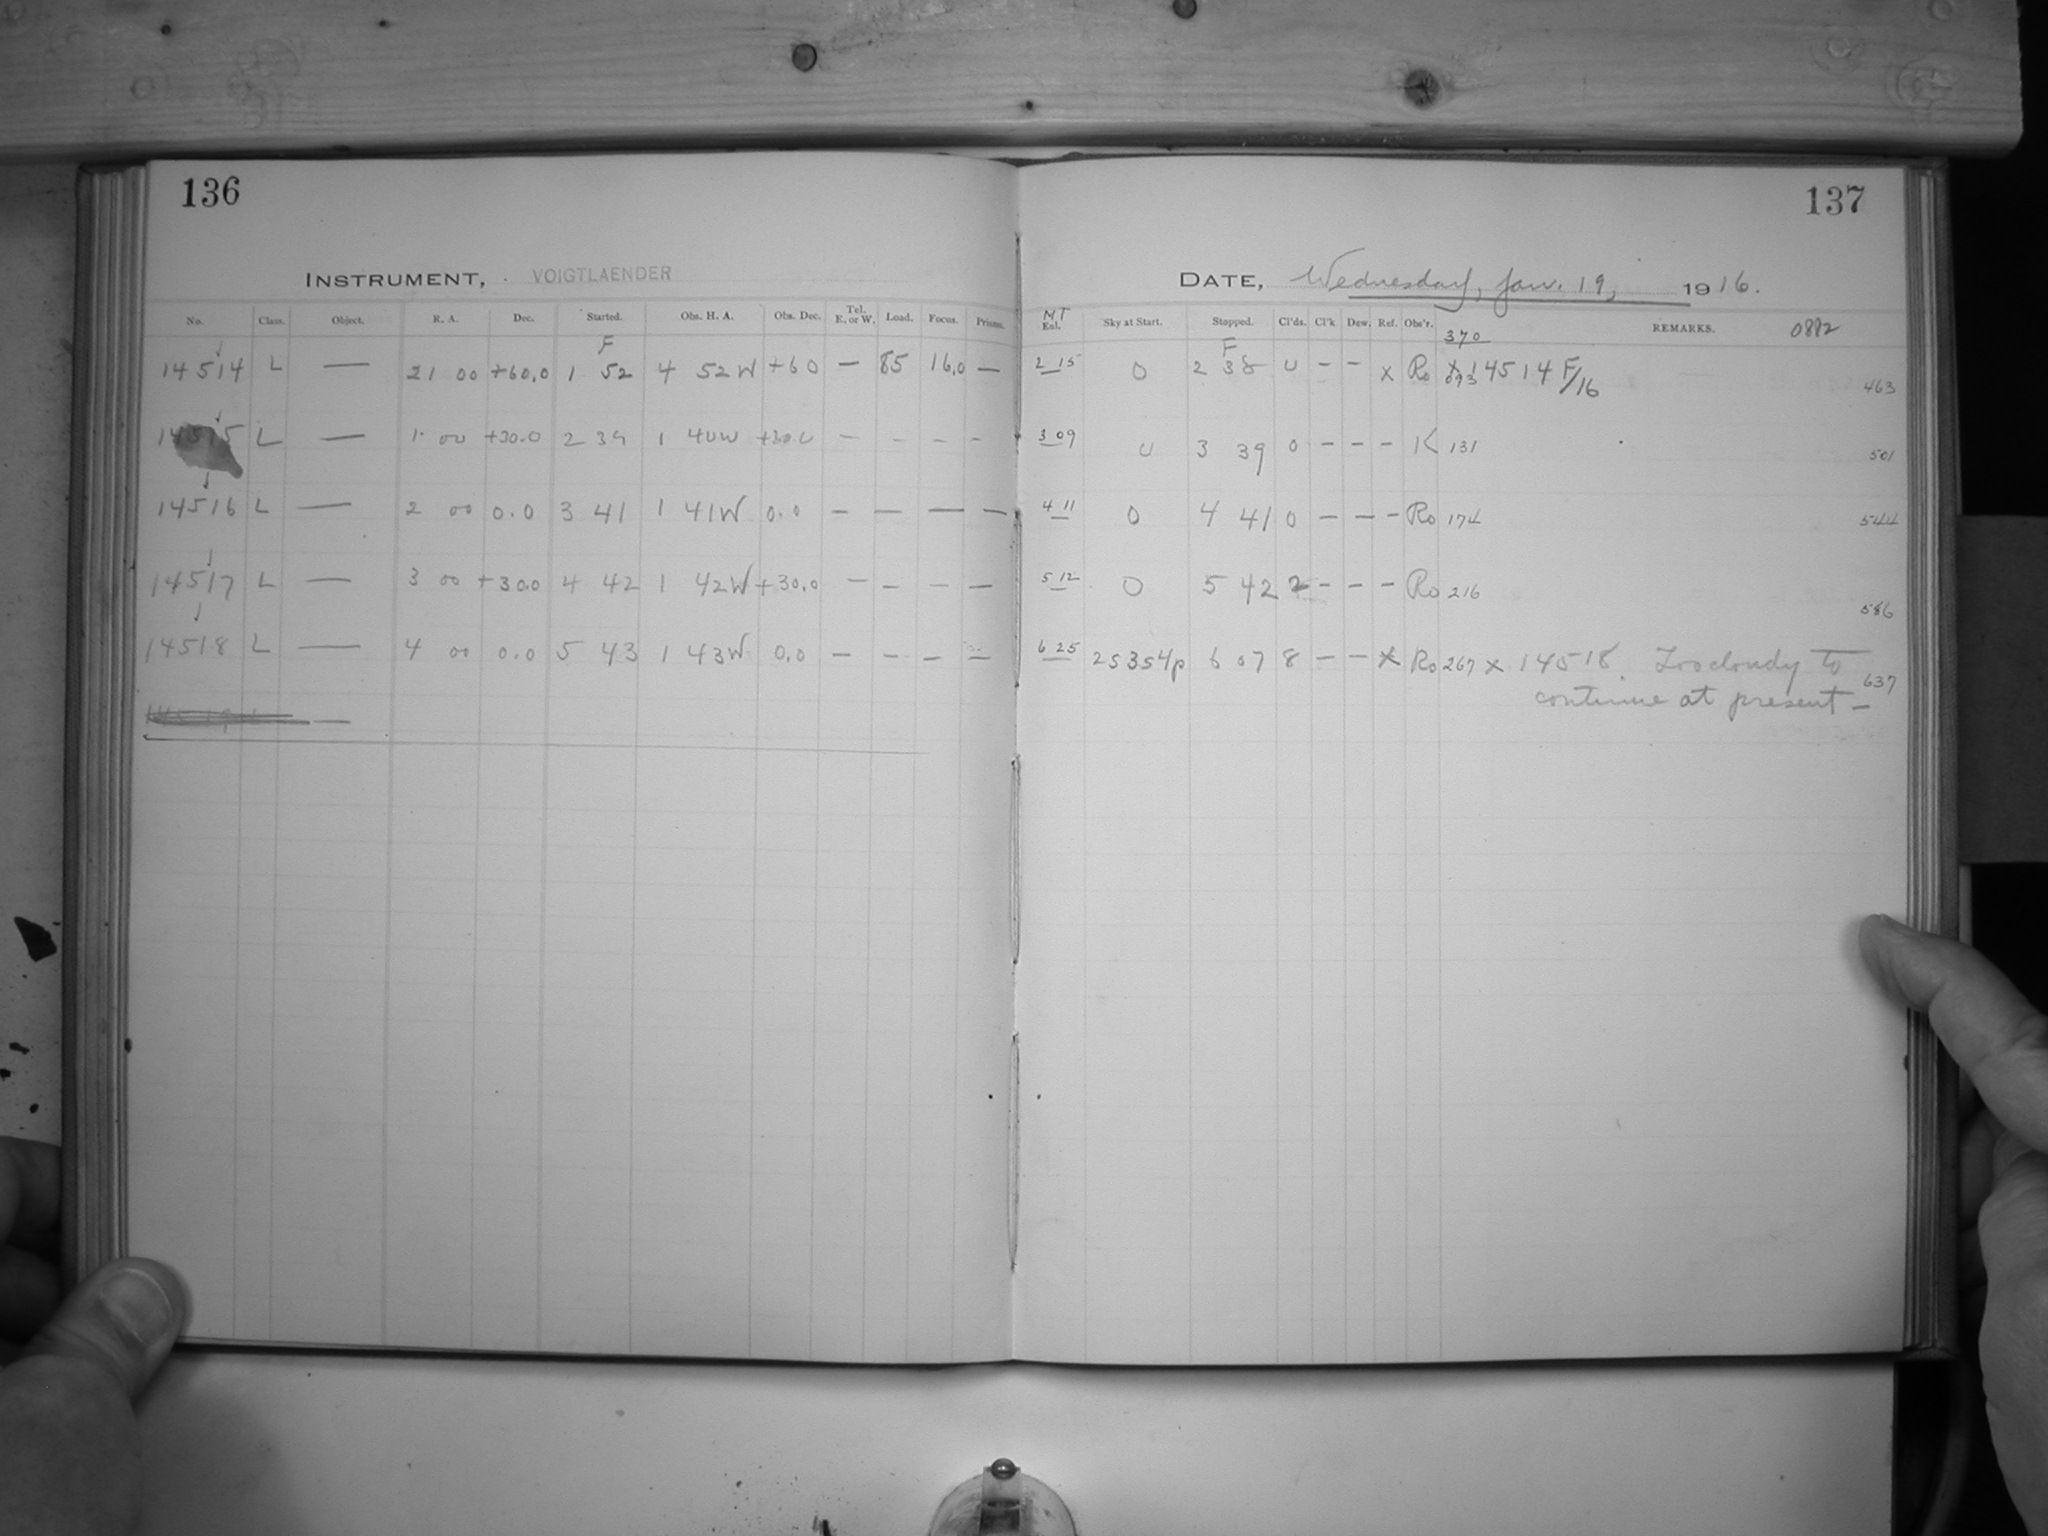 136
137
INSTRUMENT, VOIGTLAENDER
DATE, Wednesday, Jan. 19, 1916.
No. Class. Object. R. A. Dec. Started. Obs. H. A. Obs. Dec. Tel. E. or W. Load. Focus. Prisms. MT Exl. Sky at Start. Stopped. Cl'ds. Cl'k Dew. Ref. Obs'r. 370 REMARKS. 0882
F F
14514 L — 21 00 +60.0 1 52 4 52W +60 — 85 16.0 — 2 15 0 2 38 0 — — x Ro 093 x 14514 F/16 463
14515 L — 1 00 +30.0 2 39 1 40W +30.0 — — — — 3 09 0 3 39 0 — — — K 131 501
14516 L — 2 00 0.0 3 41 1 41W 0.0 — — — — 4 11 0 4 41 0 — — — Ro 174 544
14517 L — 3 00 +30.0 4 42 1 42W +30.0 — — — — 5 12 0 5 42 2 — — — Ro 216 586
14518 L — 4 00 0.0 5 43 1 43W 0.0 — — — — 6 25 2S3S4p 6 07 8 — — x Ro 267 x 14518. Too cloudy to 637
continue at present —